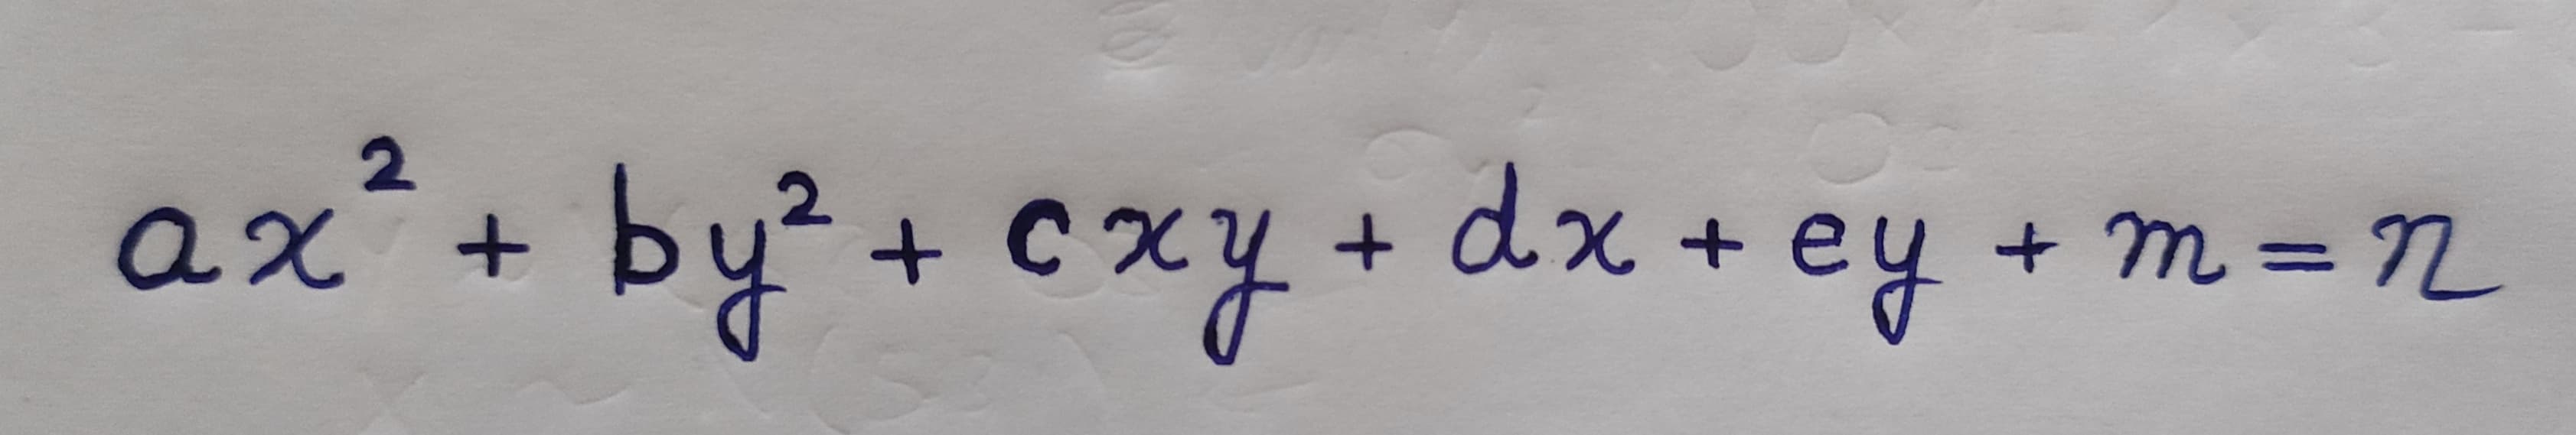 ax² + by² + cxy + dx + ey + m = n